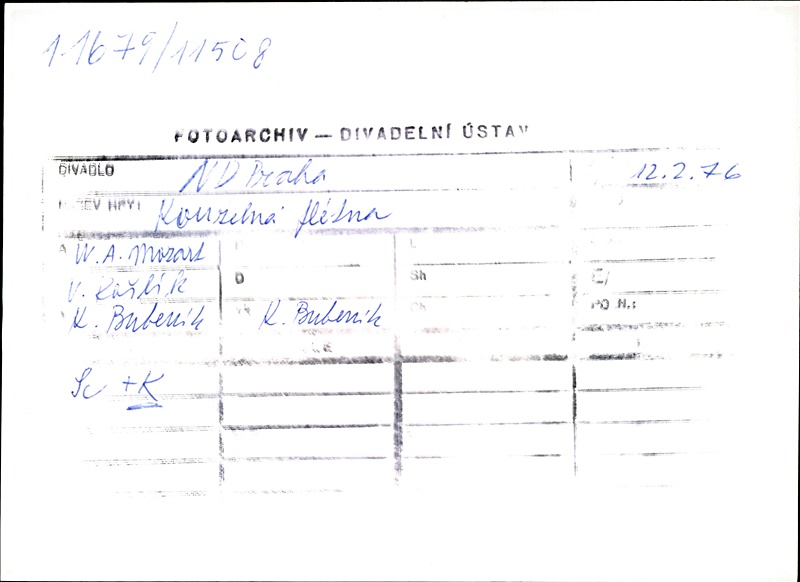 1-1679/11508
FOTOARCHIV — DIVADELNÍ ÚSTAV
DIVADLO ND Praha 12.2.76
Kouzelná flétna
A W. A. Mozart L
D Sh
V. Kašlík
K. Bubeník K. Bubeník PO N.:
Sc + K